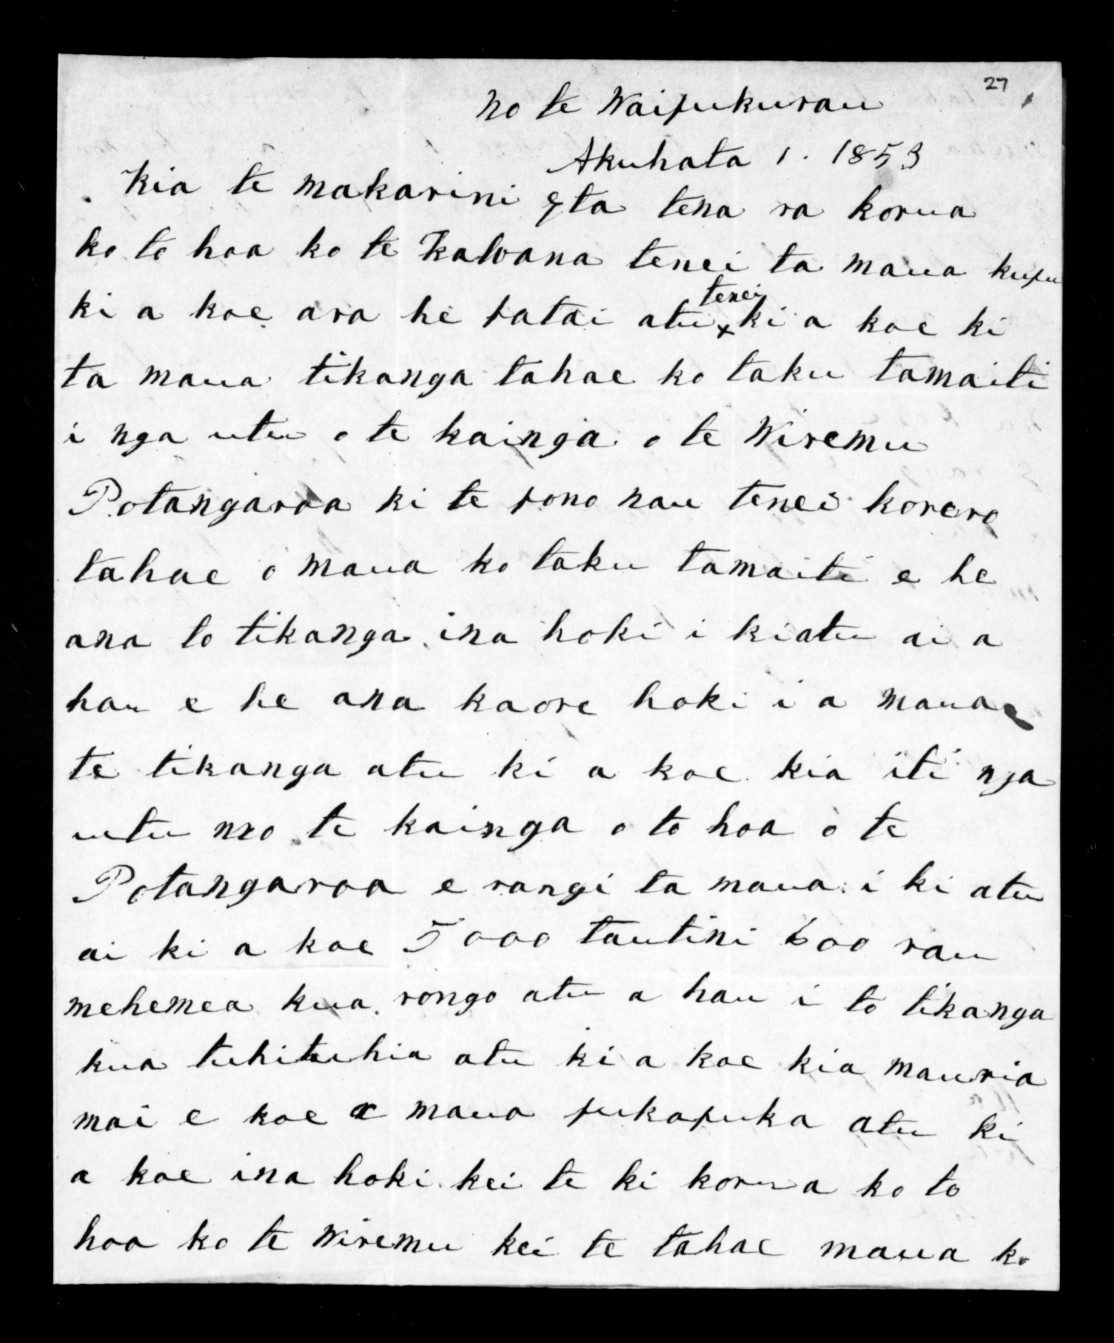 27
No te Waipukurau
Akuhata 1. 1853
Kia te makarini eta tena ra korua
ko to hoa ko te Kawana tenei ta maua kupu
ki a koe ara he patai atu tenei ki a koe ki
ta maua tikanga tahae ko taku tamaiti
i nga utu o te kainga o te Wiremu
Potangaroa ki te pono nau tenei korero
tahae o maua ko taku tamaiti e he
ana to tikanga ina hoki i kiatu ai a
hau e he ana kaore hoki i a maua
te tikanga atu ki a koe kia iti nga
utu mo te kainga o to hoa o te
Potangaroa e rangi ta maua i ki atu
ai ki a koe 5000 tautini 600 rau
mehemea kua rongo atu a hau i to tikanga
kua tuhituhia atu ki a koe kia mauria
mai e koe a maua pukapuka atu ki
a koe ina hoki kei te ki korua ko to
hoa ko te Wiremu kei te tahae maua ko